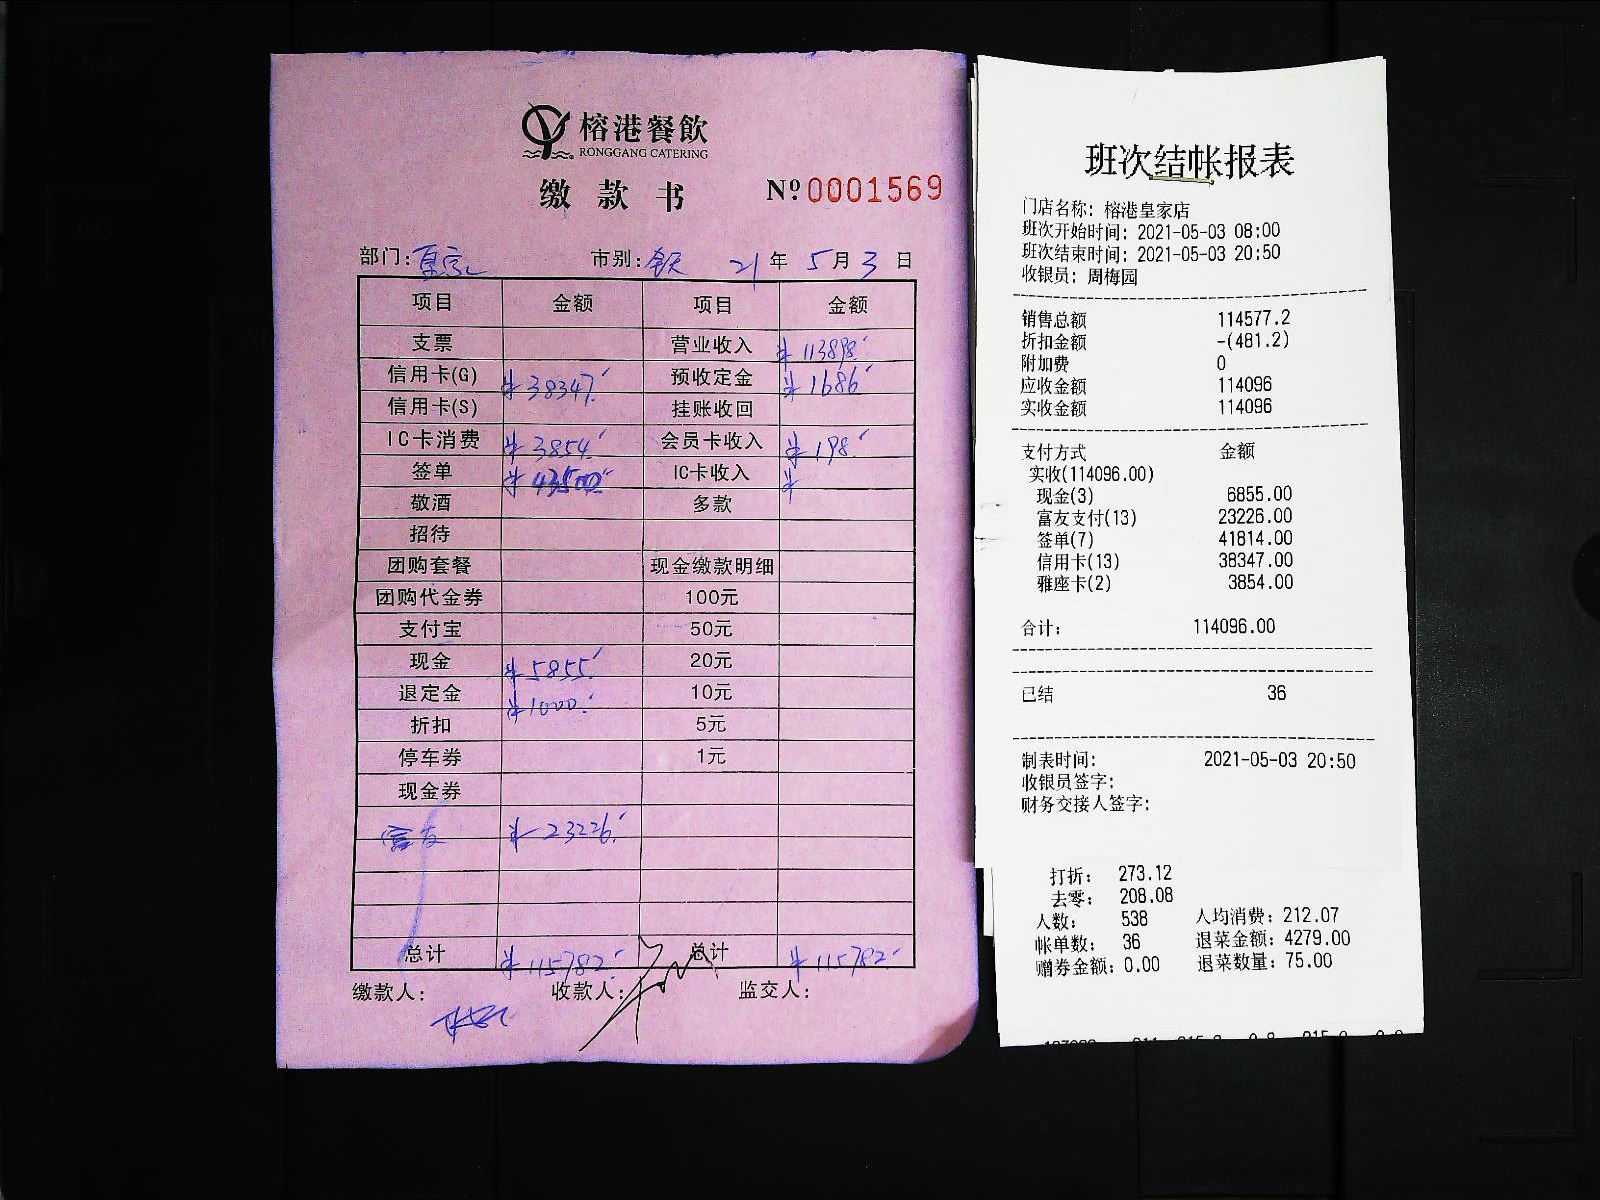 榕港餐飲
RONGGANG CATERING
缴款书 Nº0001569
部门: 市别: 21年5月3日
项目 金额 项目 金额
支票 营业收入 ¥113898.
信用卡(G) ¥38347. 预收定金 ¥1686
信用卡(S) 挂账收回
IC卡消费 ¥3854. 会员卡收入 ¥198.
签单 ¥43500 IC卡收入 ¥
敬酒 多款
招待
团购套餐 现金缴款明细
团购代金券 100元
支付宝 50元
现金 ¥5855. 20元
退定金 ¥1000. 10元
折扣 5元
停车券 1元
现金券
富友 ¥23226.
总计 ¥115782. 总计 ¥115782.
缴款人: 收款人: 监交人:
班次结帐报表
门店名称: 榕港皇家店
班次开始时间: 2021-05-03 08:00
班次结束时间: 2021-05-03 20:50
收银员: 周梅园
销售总额 114577.2
折扣金额 -(481.2)
附加费 0
应收金额 114096
实收金额 114096
支付方式 金额
实收(114096.00)
现金(3) 6855.00
富友支付(13) 23226.00
签单(7) 41814.00
信用卡(13) 38347.00
雅座卡(2) 3854.00
合计: 114096.00
已结 36
制表时间: 2021-05-03 20:50
收银员签字:
财务交接人签字:
打折: 273.12
去零: 208.08
人数: 538 人均消费: 212.07
帐单数: 36 退菜金额: 4279.00
赠券金额: 0.00 退菜数量: 75.00